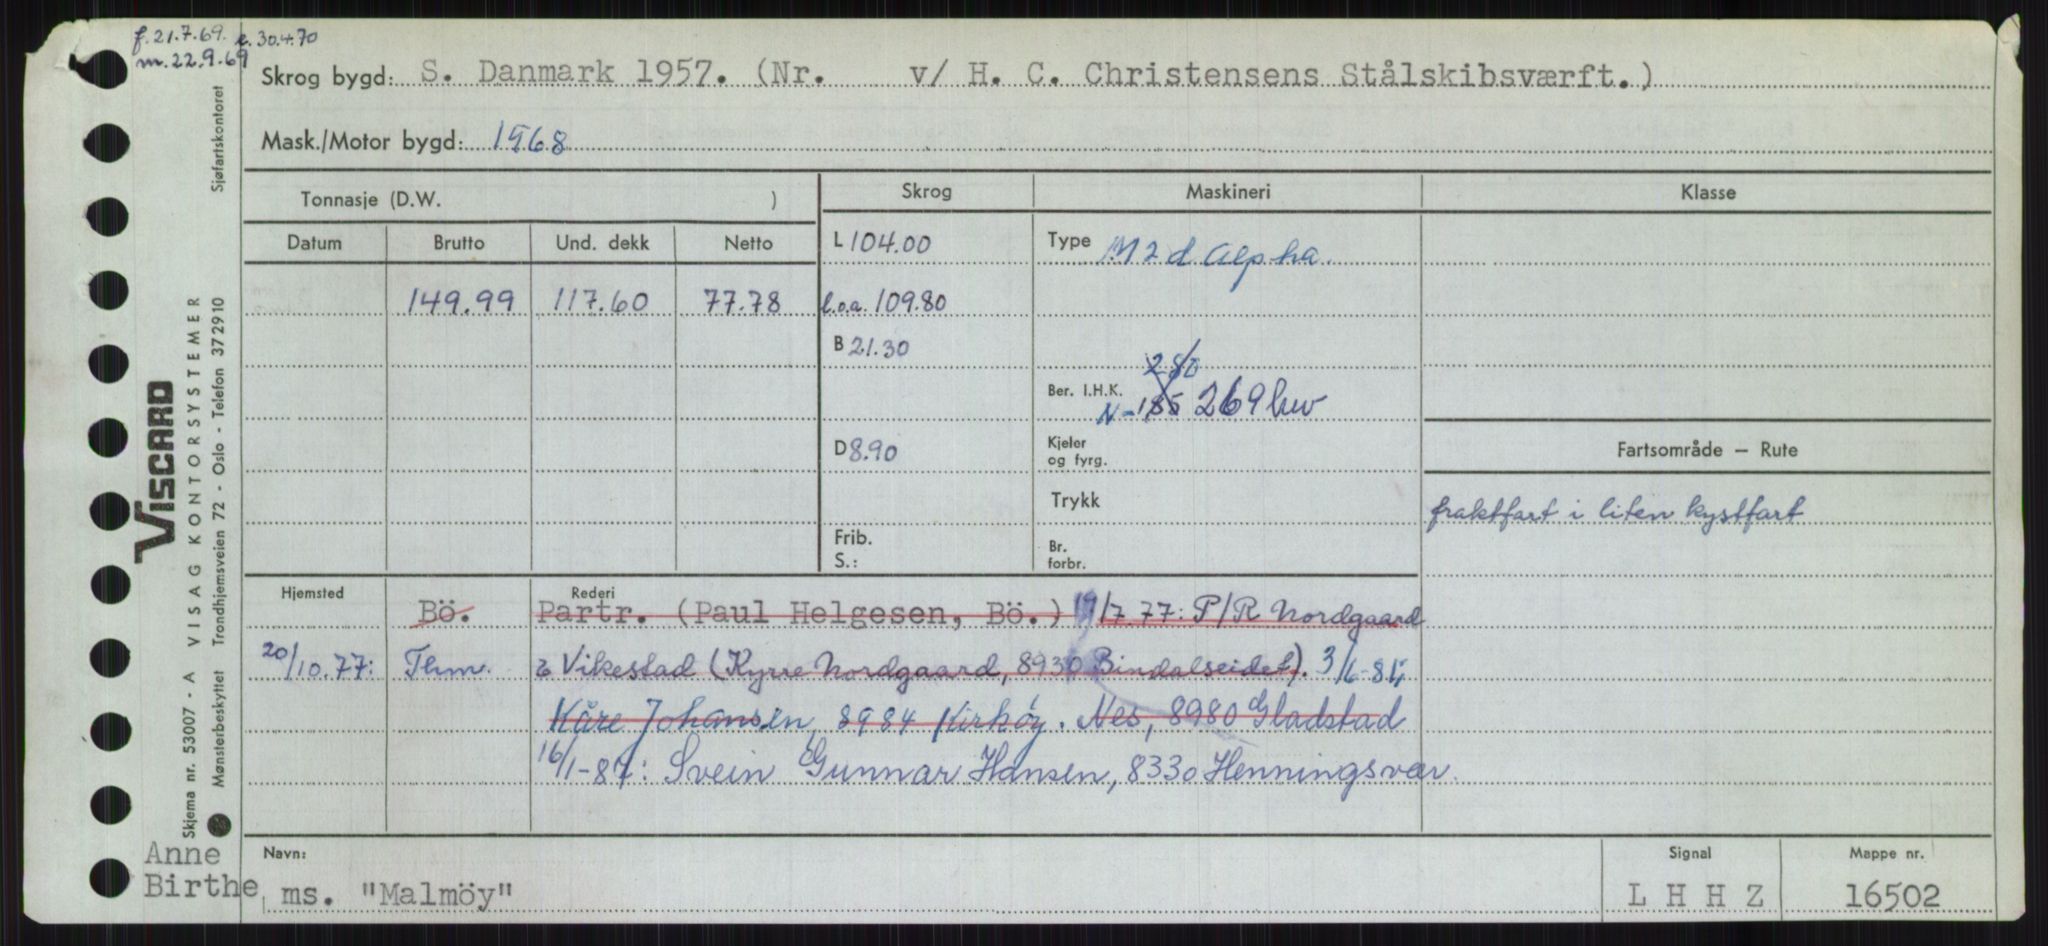 f. 21.7.69. e. 30.4.70
m. 22.9.69
Skrog bygd: S. Danmark 1957. (Nr. v/ H. C. Christensens Stålskibsværft.)
Mask./Motor bygd: 1968
Tonnasje (D.W. )
Skrog
Maskineri
Klasse
Datum Brutto Und. dekk Netto
L 104.00
Type M 2 d Alpha.
149.99 117.60 77.78
l.o.a. 109.80
B 21.30
280
Ber. I.H.K. N-185 269 hw
D 8.90
Kjeler
og fyrg.
Fartsområde – Rute
Trykk
fraktfart i liten kystfart
Frib.
S.:
Br.
forbr.
Hjemsted
Rederi
Bö. Partr. (Paul Helgesen, Bö.) 19/7.77: P/R Nordgaard
20/10.77: Thm. & Vikestad (Kyrre Nordgaard, 8930 Bindalseidet). 3/6-85
Kåre Johansen, 8984 Kirköy. Nes, 8980 Gladstad
16/1-87: Svein Gunnar Hansen, 8330 Henningsvær.
Navn:
Signal
Mappe nr.
Anne
Birthe
ms. "Malmöy"
L H H Z
16502
VISCARD
Skjema nr. 53007 - A VISAG KONTORSYSTEMER
Mønsterbeskyttet Trondhjemsveien 72 - Oslo - Telefon 37 29 10 Sjøfartskontoret